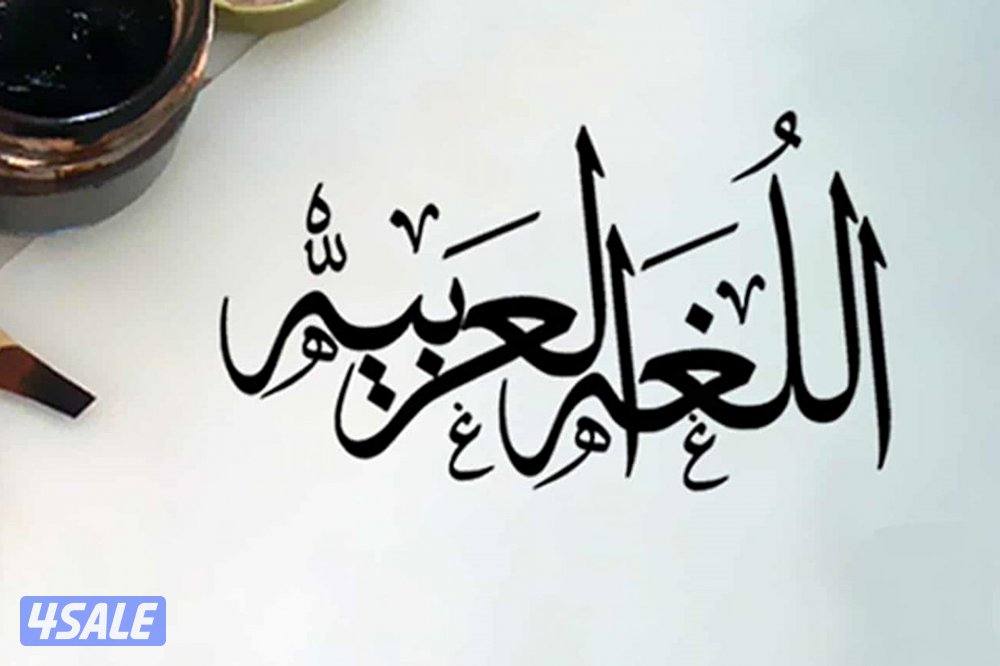 اللُغه العَربيه
4SALE